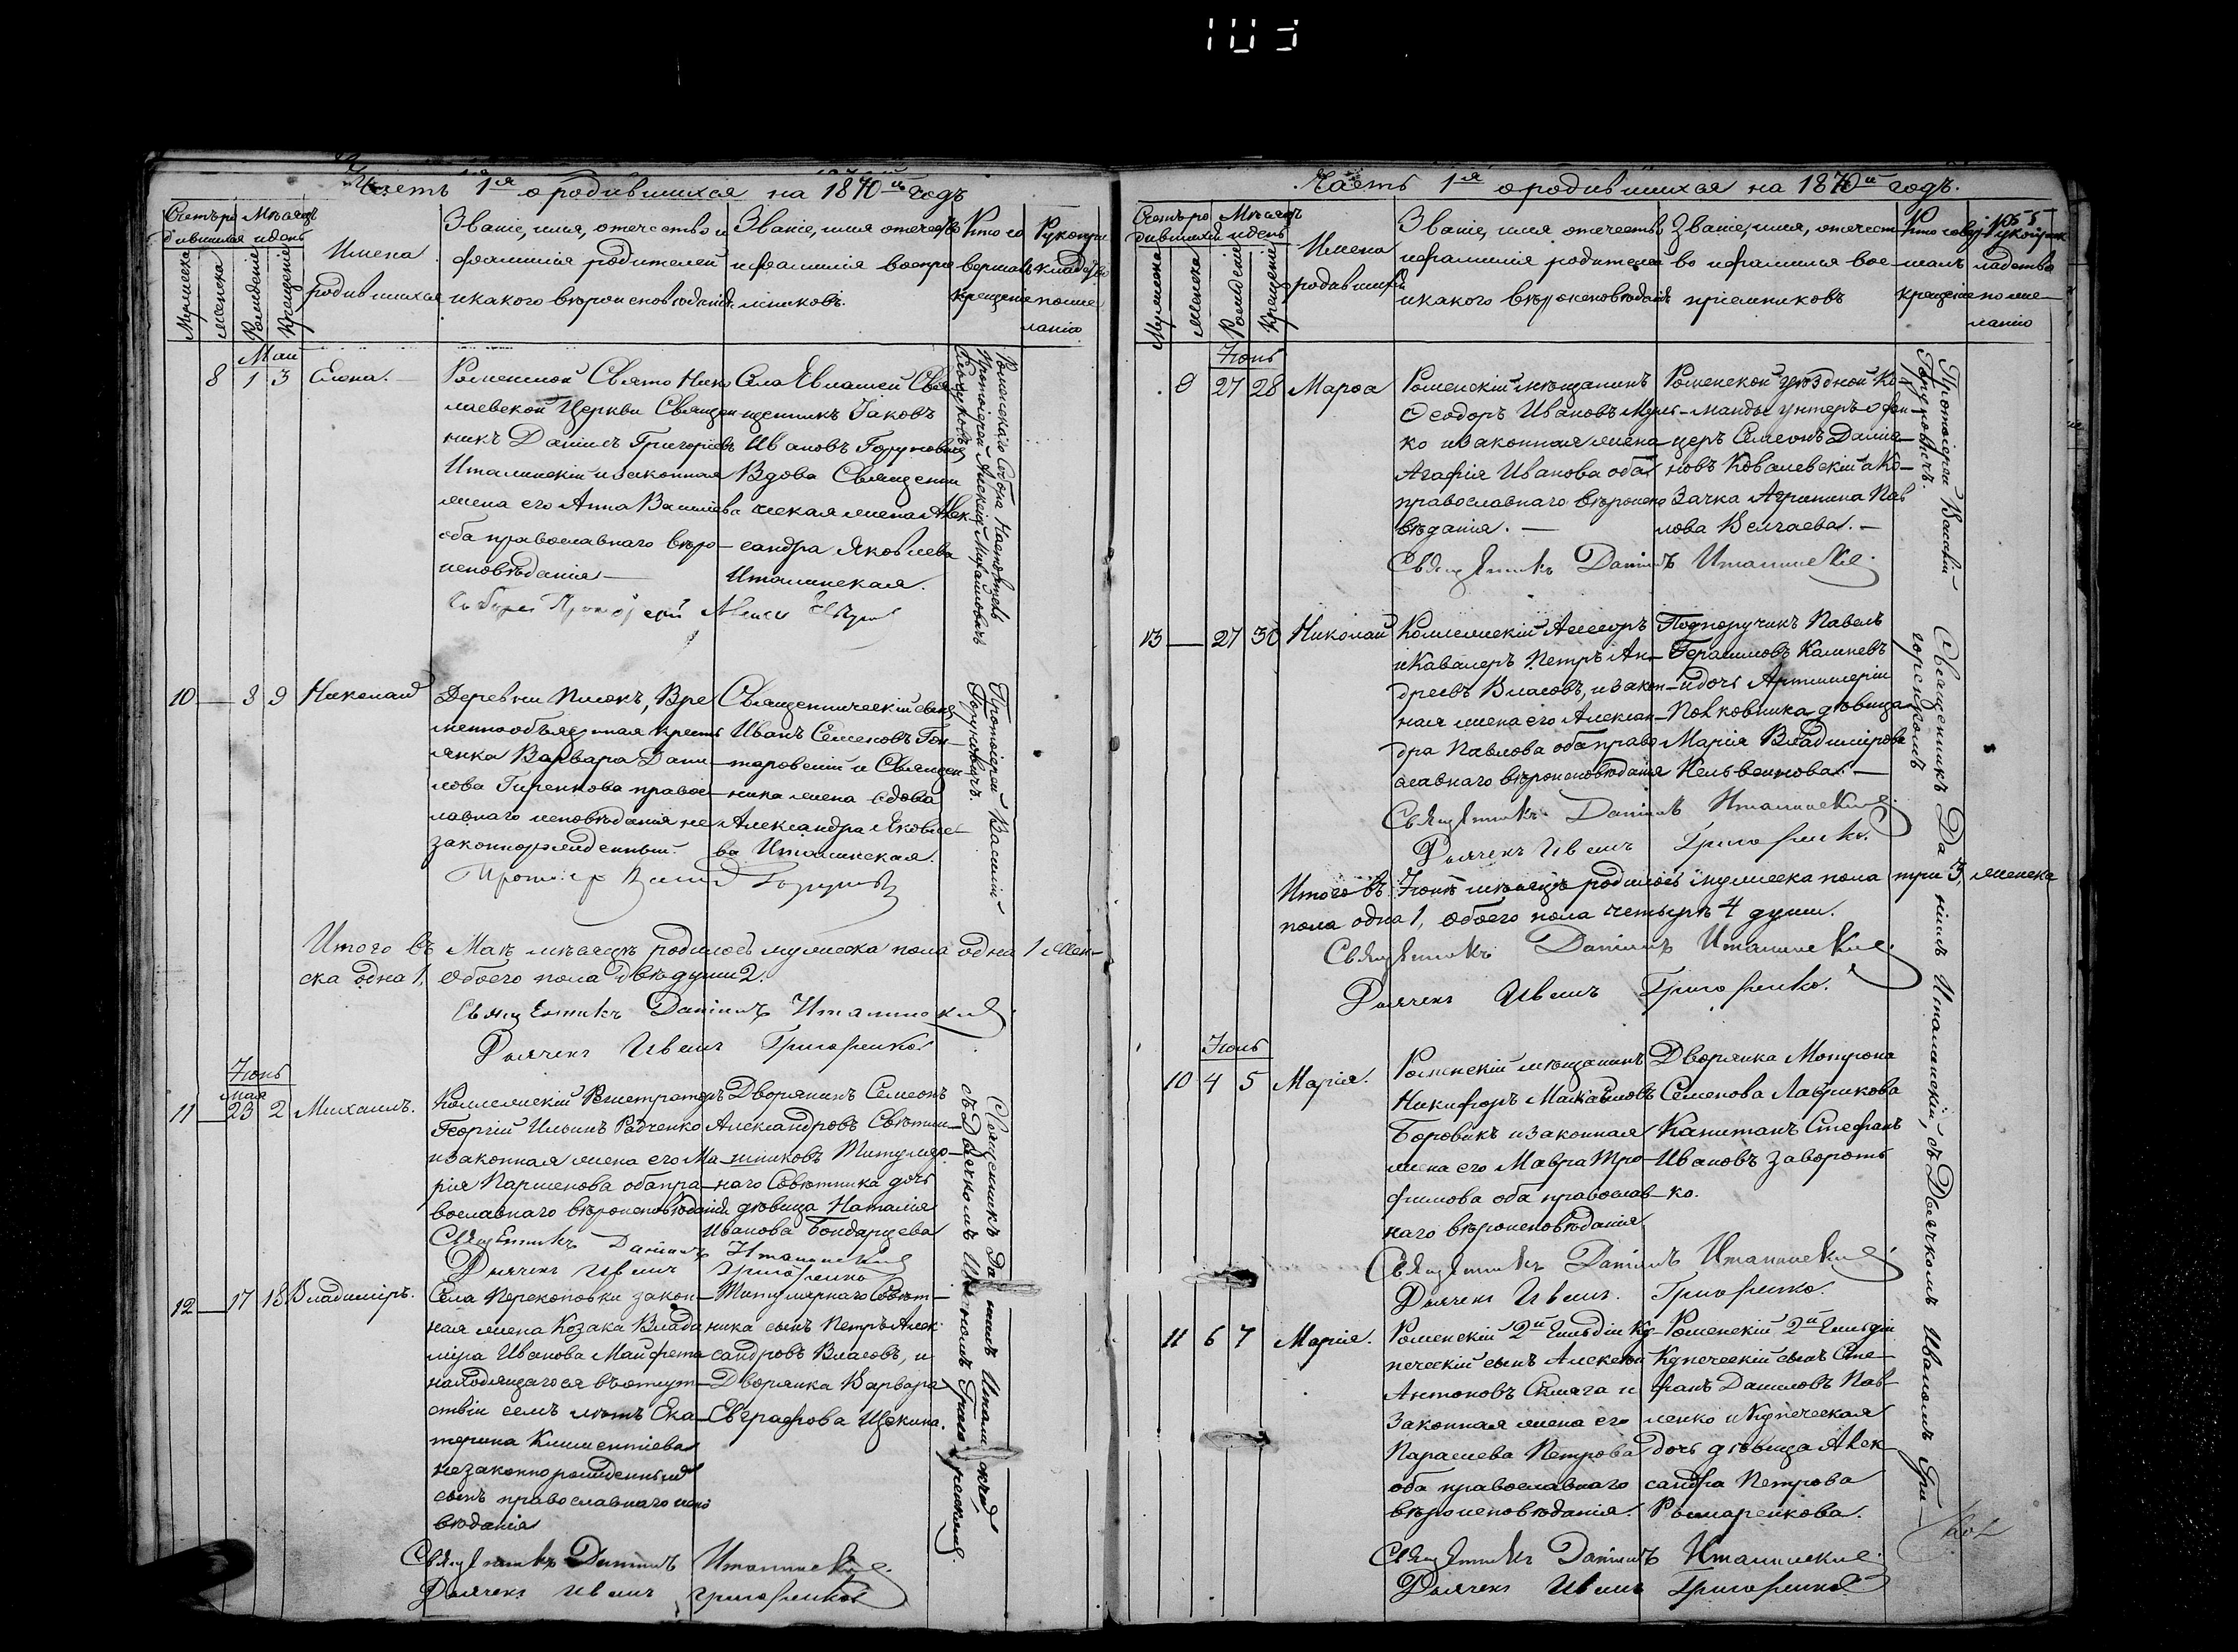 103
Часть 1ая о родившихся на 1870й годъ
Счетъ ро
дившихся
Мѣсяцъ
и день
Мужеска
женска
Рожденіе
Крещеніе
Имена
родившихся
Званіе, имя, отечество и
фамилія родителей
и какого вѣроисповѣданія
Званіе, имя отечество
и фамилія воспріе
мниковъ.
Кто со
вершалъ
крещеніе
Рукопри
кладство
по же
ланію
Маи
8 1 3 Елена. —
Роменской Свято Нико
лаевской Церкви Священ
никъ Даніилъ Григоріевъ
Италинскій и законная
жена его Анна Васильева
оба православнаго вѣро-
исповѣданія —
Села Евлашей Свя
щенникъ Іаковъ
Ивановъ Горуновичъ
Вдова Священни
ческая жена Алек
сандра Яковлева
Италинская.
Роменскаго Собора Настоятель
Протоіерей Алексій
10 — 8 9 Николай
Деревни Пляскъ, Вре
менно обязанная кресть
янка Варвара Дани
лова Гиренкова правос
лавнаго исповѣданія не
законнорожденный.
Священническій сынъ
Иванъ Семеновъ Гон
таровскій и Священ
ника жена вдова
Александра Яковле-
ва Италинская.
Протоіерей Василій
Горуновичъ.
Итого въ Маѣ мѣсяцѣ родилось мужеска пола одна 1 жен-
ска одна 1, обоего пола двѣ души 2.
Священникъ Даніилъ Италинскій
Дьячекъ Иванъ Григоренко
Іюнь
Мая
11 — 23 2 Михаилъ.
Коллежскій Регистраторъ
Георгій Ильинъ Радченко
и законная жена его Ма
рія Парменова оба пра
вославнаго вѣроисповѣданія
Дворянинъ Семеонъ
Александровъ Свѣтли-
шниковъ Титуляр-
наго Совѣтника дочь
дѣвица Наталія
Иванова Бондарцева
Священникъ Даніилъ Италинскій
Дьячекъ Иванъ Григоренко
Священникъ Даніилъ Италинскій
съ Дьячкомъ Иваномъ Григоренкомъ
12 — 17 18 Владиміръ.
Села Перекоповки закон-
ная жена Козака Влади
міра Иванова Майфета
находящагося въ отсут-
ствіи семь лѣтъ Ека-
терина Климентіева
незаконнорожденный
сынъ православнаго испо
вѣданія
Титулярнаго Совѣт-
ника сынъ Петръ Алек
сандровъ Власовъ, и
Дворянка Варвара
Евграфова Щекина.
Священникъ Даніилъ Италинскій
Дьячекъ Иванъ Григоренко
Часть 1ая о родившихся на 1870й годъ.
Счетъ ро
дившихся
Мѣсяцъ
и день
Мужеска
Женска
Рожденіе
Крещеніе
Имена
родившихся
Званіе, имя отечество
и фамилія родителей
и какого вѣроисповѣданія
Званіе, имя, отечест
во и фамилія вос-
пріемниковъ
Кто совер
шалъ
крещеніе
Рукопри
кладство
по же-
ланію
Іюнь
9 27 28 Марѳа
Роменскій мѣщанинъ
Ѳеодоръ Ивановъ
ко и законная жена
Агафія Иванова оба
православнаго вѣроиспо
вѣданія. —
Роменской уѣздной Ко-
манды унтеръ офи-
церъ Семеонъ Дані
новъ Ковалевскій и Ко-
зачка Агрипина Пав
лова Величаева. —
Протоіерей Василій
Горуновичъ.
Священникъ Даніилъ Италинскій
13 — 27 30 Николай
Коллежскій Ассесоръ
и Кавалеръ Петръ Ан-
дреевъ Власовъ, и закон-
ная жена его Алексан-
дра Павлова оба право
славнаго вѣроисповѣданія
Подпоручикъ Павелъ
Герасимовъ Калиневъ
и дочь Артиллеріи
Полковника дѣвица
Марія Владимірова
Кельвеинова. —
Священникъ Даніилъ Италинскій
Дьячекъ Иванъ Григоренко.
Итого въ Іюнѣ мѣсяцѣ родилось мужеска пола три 3, женска
пола одна 1, обоего пола четырѣ 4 души.
Священникъ Даніилъ Италинскій
Дьячекъ Иванъ Григоренко.
Священникъ Даніилъ Италинскій, съ Дьячкомъ Иваномъ Гри-
горенкомъ
Іюль
10 4 5 Марія.
Роменскій мѣщанинъ
Никифоръ Михайловъ
Боровикъ и законная
жена его Мавра Тро-
фимова оба православ-
наго вѣроисповѣданія
Дворянка Мотрона
Семенова Лаврикова
Капитанъ Стефанъ
Ивановъ Заворотъ
ко.
Священникъ Даніилъ Италинскій
Дьячекъ Иванъ Григоренко.
11 6 7 Марія.
Роменскій 2й Гильдіи Ку-
печескій сынъ Алексѣй
Антоновъ Скляга и
Законная жена его
Парасева Петрова
оба православнаго
вѣроисповѣданія.
Роменскій 2й Гильдіи
Купеческій сынъ Сте-
фанъ Даниловъ Пав-
ленко и Купеческая
дочь дѣвица Алек-
сандра Петрова
Рошмаренкова.
Священникъ Даніилъ Италинскій
Дьячекъ Иванъ Григоренко